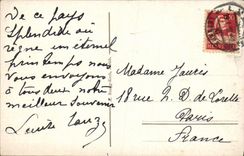 De ce pays
splendide où
règne un éternel
printemps nous
vous envoyons
à tous deux notre
meilleur souvenir
Louise
Madame Jaurès
18 rue N. D. de Lorette
Paris
France